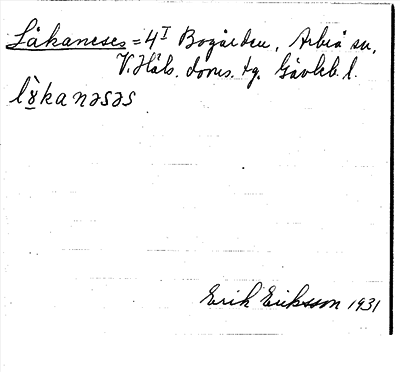 Låkaneses = 4ᴵ Bogården, Arbrå sn,
V. Häls. doms. tg. Gävleb. l.
lɣ̀kanəsəs
Erik Eriksson 1931